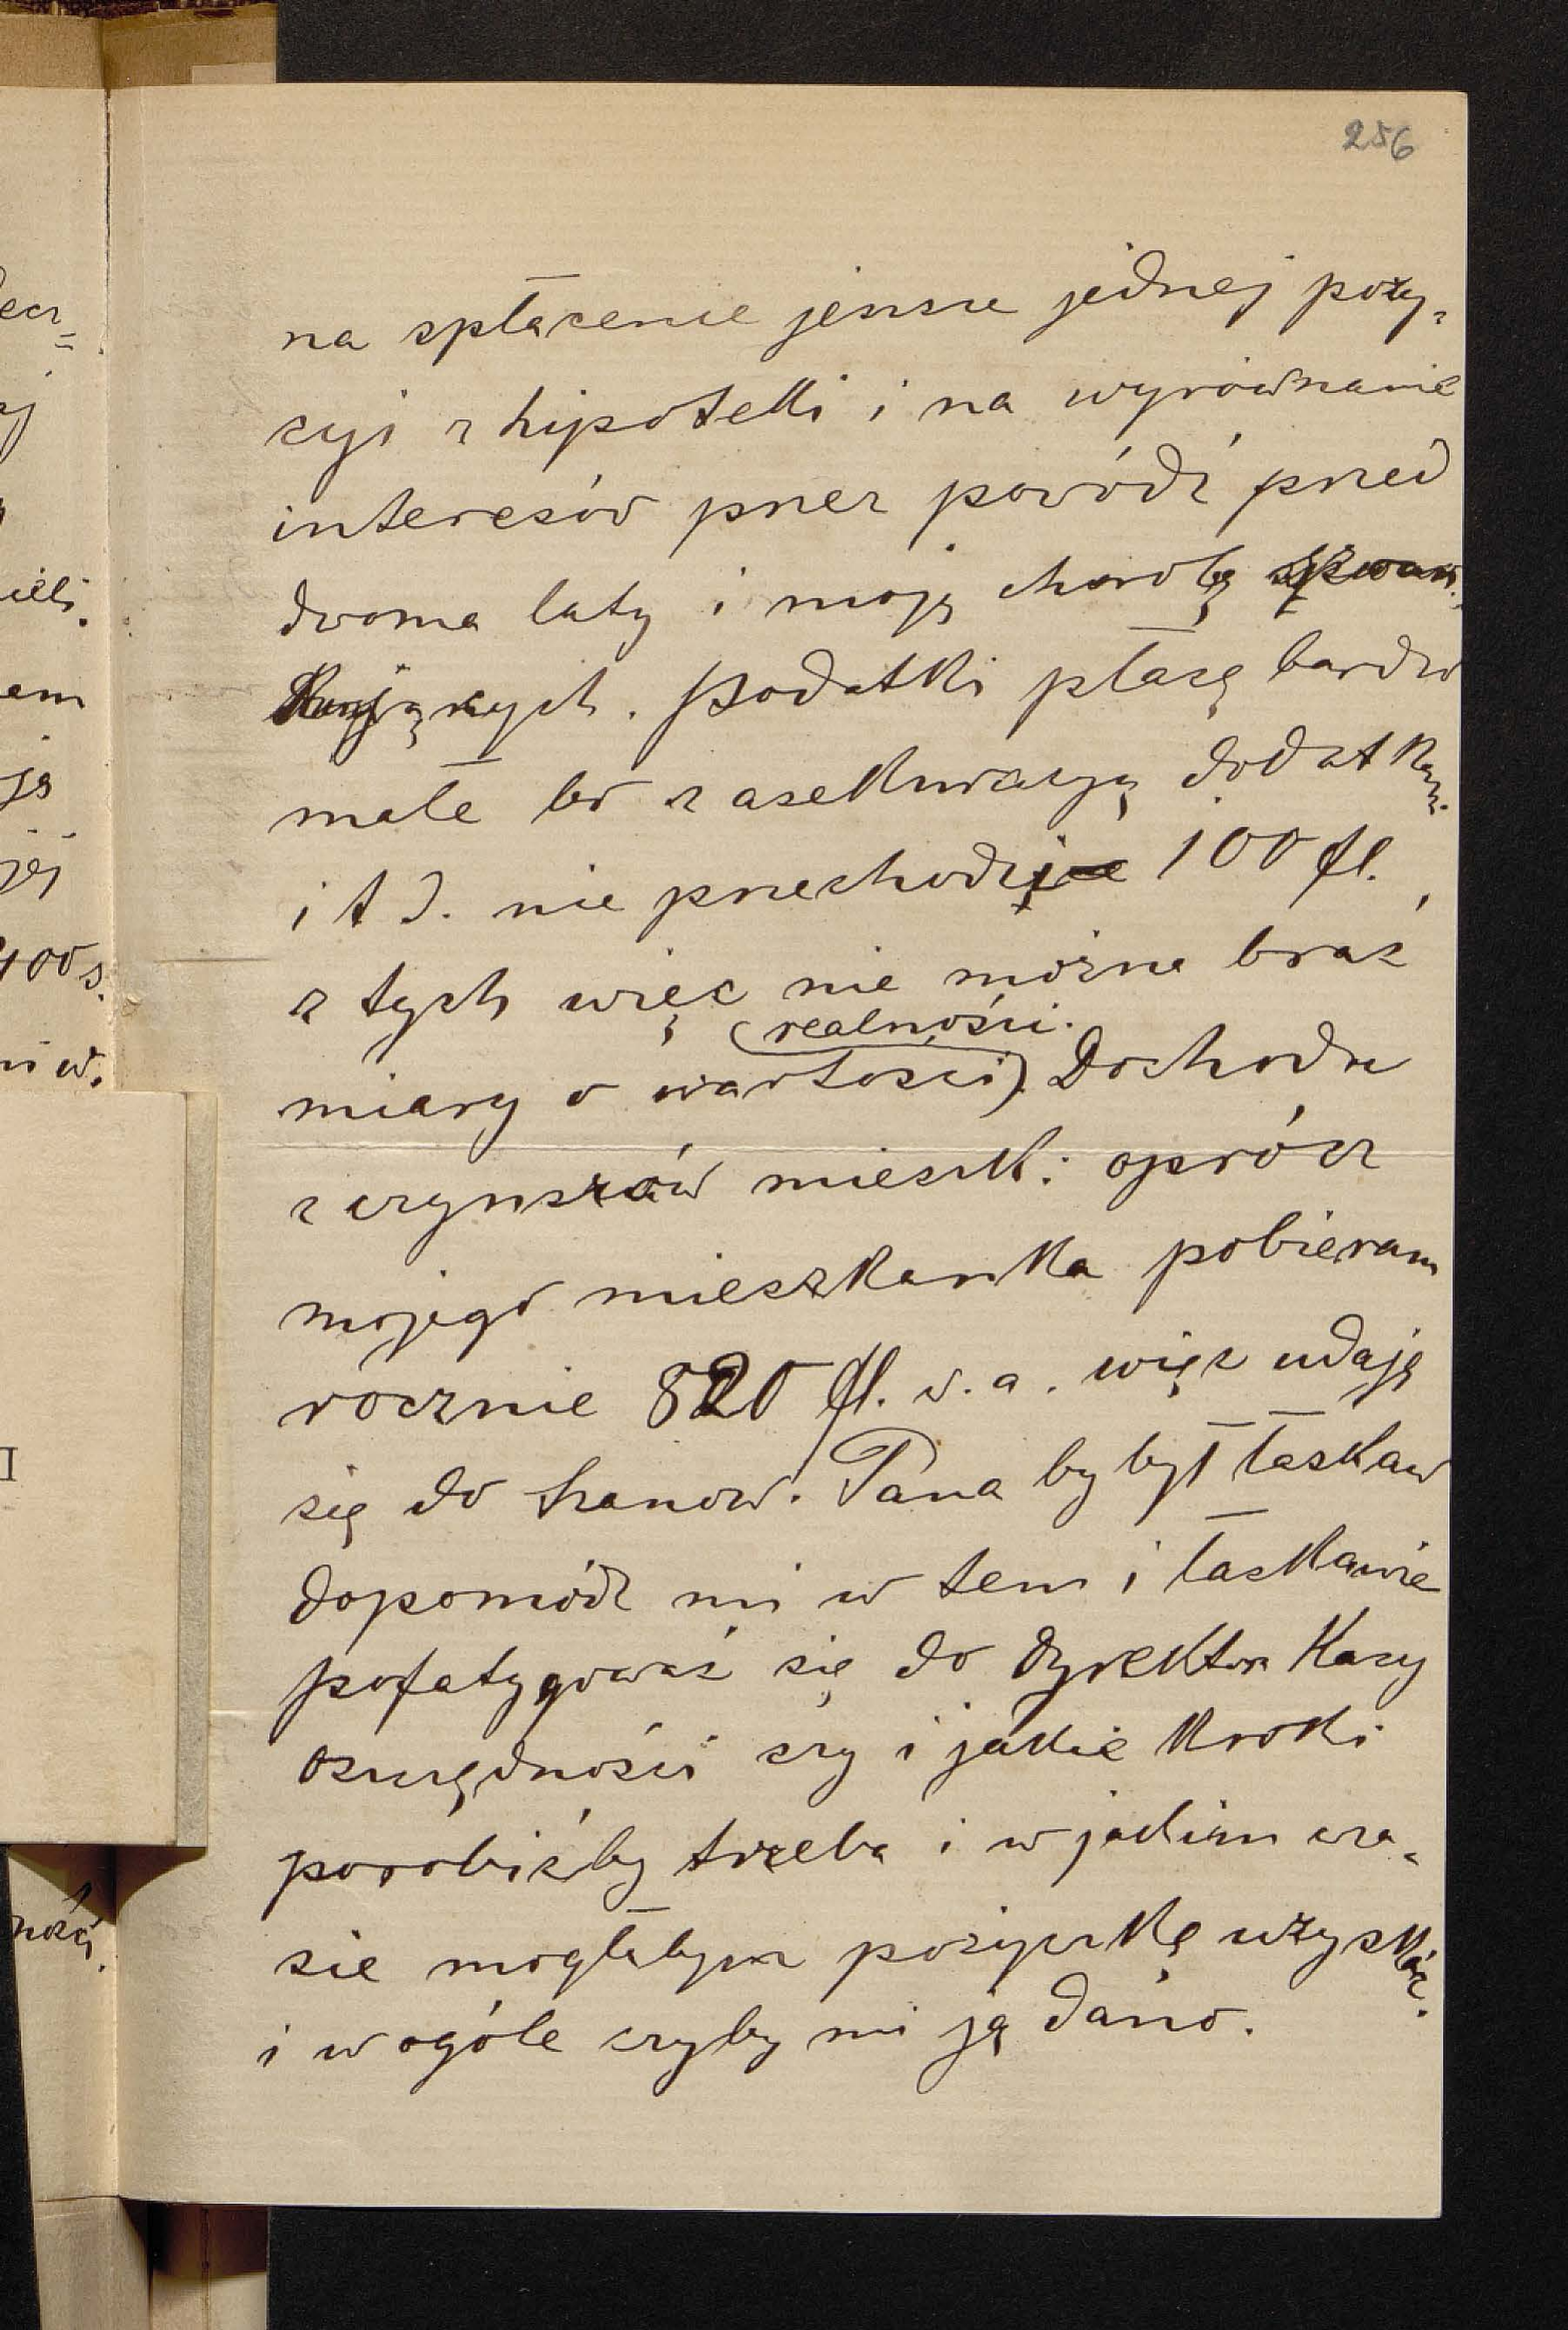 256
na spłacenie jeszcze jednej pozy-
cyi z hipoteki i na wyrównanie
interesów przez powódź przed
dwoma laty i moją chorobę
Podatki płacę bardzo
małe bo z asekuracyą dodatkami
i t d. nie przechodzi 100 fl.,
z tych więc nie można brać
realności.
miary o wartości). Dochodu
z czynszów mieszk: oprócz
mojego mieszkanka pobieram
rocznie 820 fl. w. a. więc udaję
się do Szanow. Pana by był łaskaw
dopomódz mi w tem i łaskawie
pofatygować się do Dyrektora Kasy
oszczędności czy i jakie kroki
porobićby trzeba i w jakim cza-
sie mogłabym pożyczkę uzyskać.
i w ogóle czyby mi ją dano.